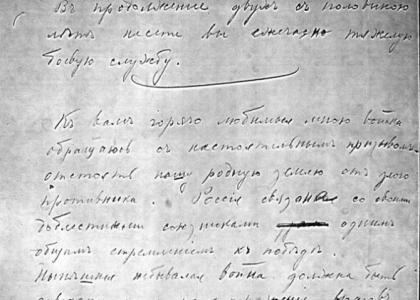 Въ продолженіе двухъ съ половиною
лѣтъ несете вы ежечасно тяжелую
боевую службу.
Къ вамъ горячо любимыя мною войска
обращаюсь съ настоятельнымъ призывомъ
отстоять нашу родную землю отъ злого
противника. Россія связана со своими
доблестными союзниками однимъ
общимъ стремленіемъ къ побѣдѣ.
Нынѣшняя небывалая война должна быть